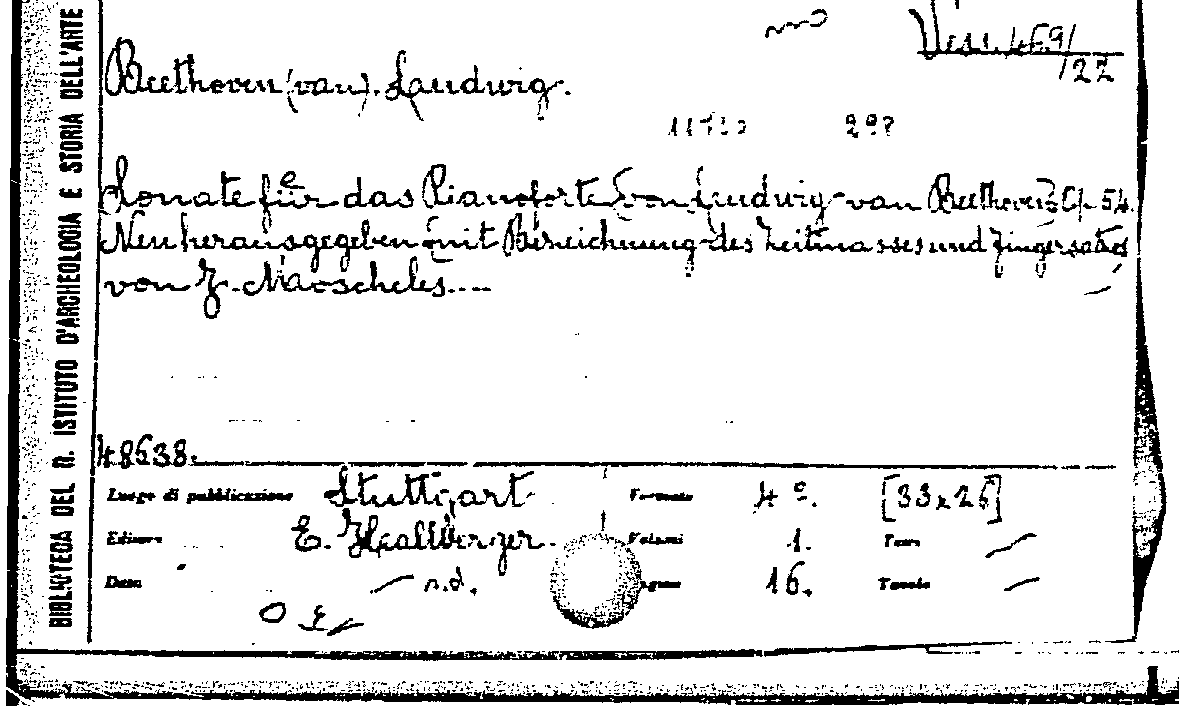 BIBLIOTECA DEL R. ISTITUTO D'ARCHEOLOGIA E STORIA DELL'ARTE
/22
Beethoven (van). Laudwig.
298
Sonate für das Pianoforte von Ludwig van Beethoven Op. 54.
Neu herausgegeben mit Bereichnung des Zeitmasses und Fingersatzes
von J. Moscheles....
48638.
Luogo di pubblicazione Stuttgart Formato 4º. [33x26]
Editore E. Hallberger. Volumi 1. Tomi —
Data — n.d. 16. Tavole —